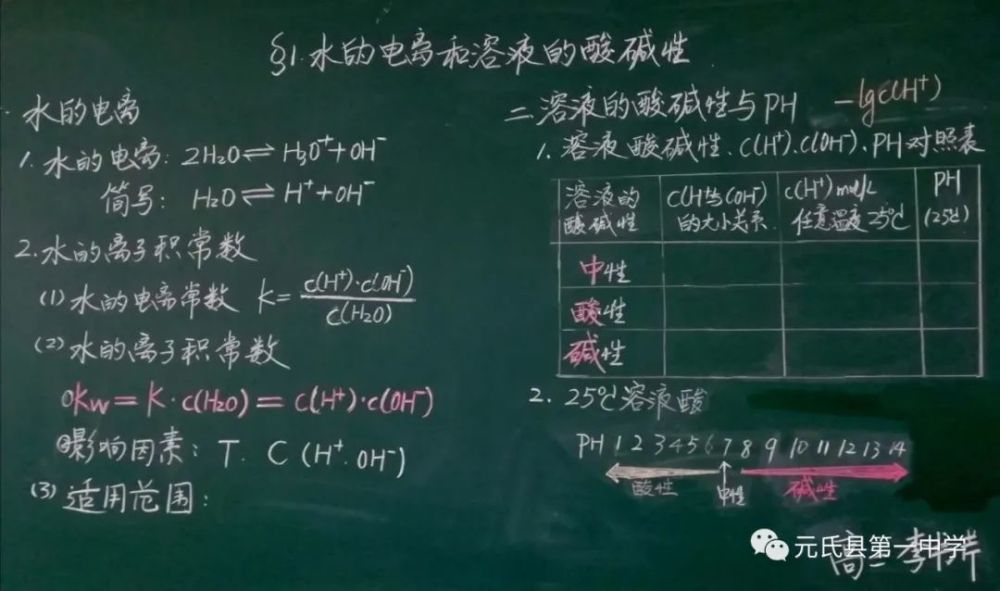 §1.水的电离和溶液的酸碱性
水的电离
1.水的电离:2H₂O⇌H₃O⁺+OH⁻
简写:H₂O⇌H⁺+OH⁻
2.水的离子积常数
(1)水的电离常数 K=c(H⁺)·c(OH⁻)/c(H₂O)
(2)水的离子积常数
①Kw=K·c(H₂O)=c(H⁺)·c(OH⁻)
②影响因素:T.C(H⁺.OH⁻)
(3)适用范围:
二 溶液的酸碱性与PH -lgc(H⁺)
1.溶液酸碱性、c(H⁺).c(OH⁻)、PH对照表
溶液的酸碱性 c(H⁺)与c(OH⁻)的大小关系 c(H⁺)mol/L 任意温度 25℃ PH (25℃)
中性
酸性
碱性
2.25℃溶液酸
PH 1 2 3 4 5 6 7 8 9 10 11 12 13 14
酸性 中性 碱性
元氏县第一中学
高二